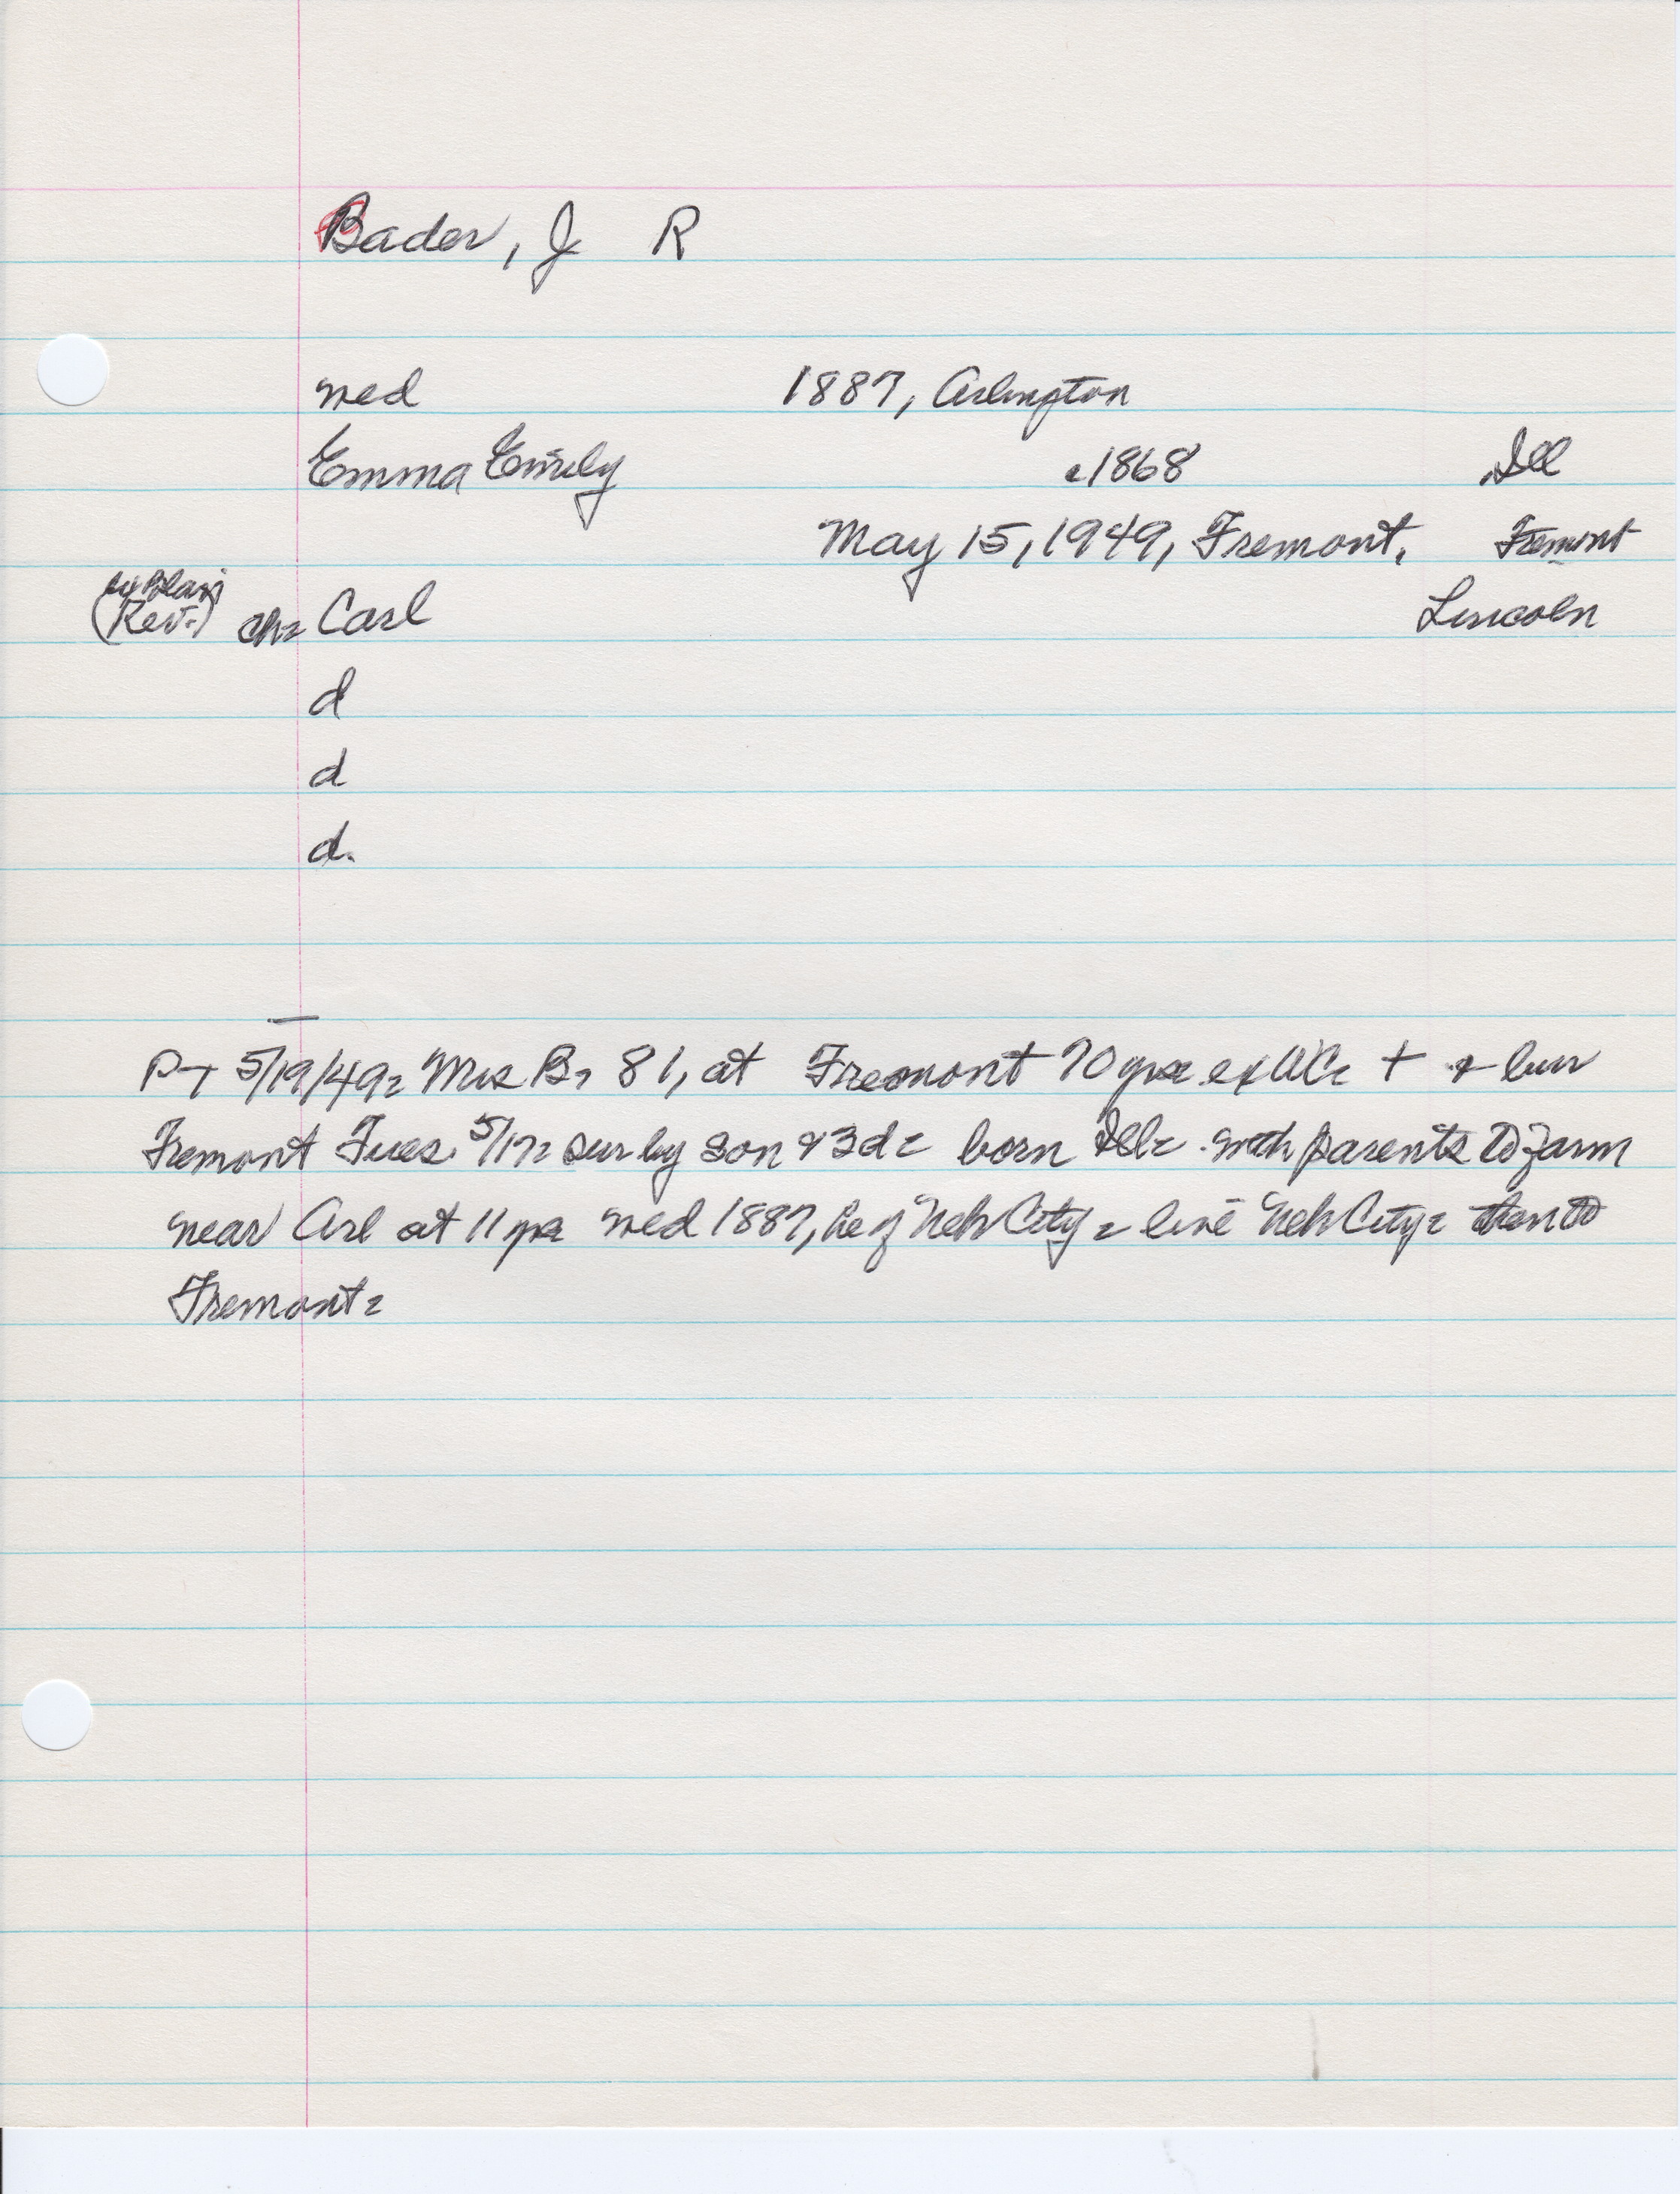 Bader, J R
med 1887, Arlington
Emma Emily c1868 Ill
May 15, 1949, Fremont, Fremont
ex Blair
(Rev.) ch= Carl Lincoln
d
d
d.
P-T 5/19/49= Mrs B, 81, at Fremont 70 yrs ex WC= + + bur
Fremont Tues. 5/17= sur by son & 3d= born Ill= with parents to farm
near Arl at 11 yrs med 1887, he of Neb City= live Neb City= then to
Fremont=